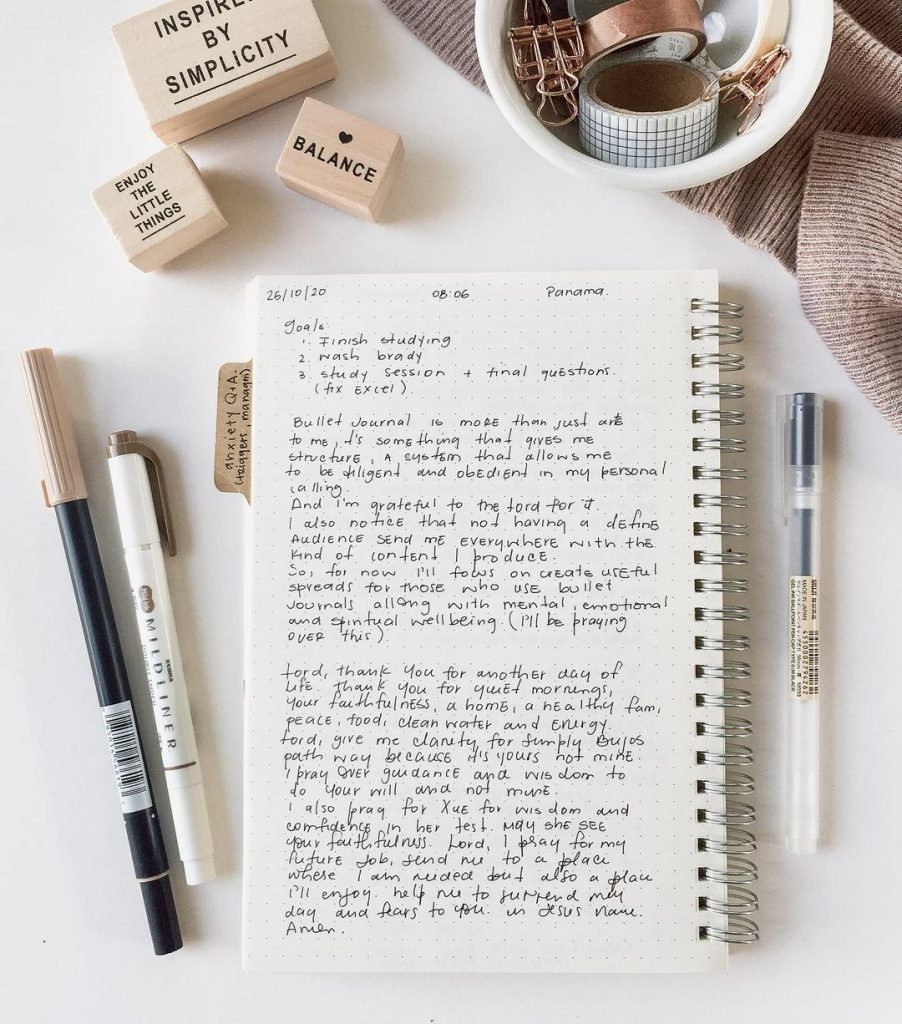 INSPIRED
BY
SIMPLICITY
BALANCE
ENJOY
THE
LITTLE
THINGS
25/10/20 08:06 Panama.
Goals
1. Finish studying
2. wash brady
3. study session + final questions.
(fix EXCEL)
anxiety Q+A.
(triggers, managm)
Bullet Journal is more than just art
to me, it's something that gives me
structure, A system that allows me
to be diligent and obedient in my personal
calling.
And I'm grateful to the Lord for it.
I also notice that not having a define
Audience send me everywhere with the
kind of content I produce.
So, for now I'll focus on create useful
spreads for those who use bullet
Journals allong with mental, emotional
and spiritual wellbeing (I'll be praying
over this).
Lord, thank you for another day of
life. Thank you for quiet mornings,
your faithfulness, a home, a healthy fam,
peace, food, clean water and energy.
Lord, give me clarity for simply Bujos
path way because it's yours not mine.
I pray over guidance and wisdom to
do your will and not mine.
I also pray for Xue for wisdom and
comfidence in her test. May she see
your faithfulness. Lord, I pray for my
future job, send me to a place
where I am needed but also a place
I'll enjoy. help me to surrend my
day and fears to you. in Jesus name.
Amen.
ZEBRA
MILDLINER
MUJI
MADE IN JAPAN
4550002794262